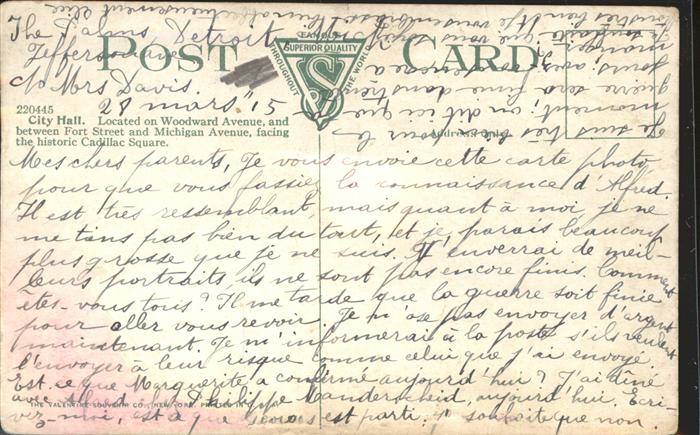 The Palms, Detroit
Jefferson
c/o Mrs Davis.
28 mars '15
POST CARD
FAMOUS
SUPERIOR QUALITY
THROUGHOUT THE WORLD
Address Only
220445
City Hall. Located on Woodward Avenue, and
between Fort Street and Michigan Avenue, facing
the historic Cadillac Square.
Mes chers parents, Je vous envoie cette carte photo
pour que vous fassiez la connaissance d'Alfred.
Il est très ressemblant, mais quant à moi je ne
me tiens pas bien du tout, et je parais beaucoup
plus grosse que je ne suis. J'enverrai de meil-
leurs portraits, ils ne sont pas encore finis. Comment
êtes-vous tous? Il me tarde que la guerre soit finie
pour aller vous revoir. Je n'ose pas envoyer d'argent
maintenant. Je m'informerai à la poste s'ils veulent
l'envoyer à leur risque comme celui que j'ai envoyé
Est-ce que Marguerite a confirmé aujourd'hui? J'ai dîné
avec Philippe Manderscheid, aujourd'hui. Ecri-
vez-moi, est-ce que est parti. Je souhaite que non.
THE VALENTINE-SOUVENIR CO., NEW YORK. PRINTED IN
Je suis très pour le
moment, on dit ici que la
guerre sera finie dans
jours, avez-vous
manger